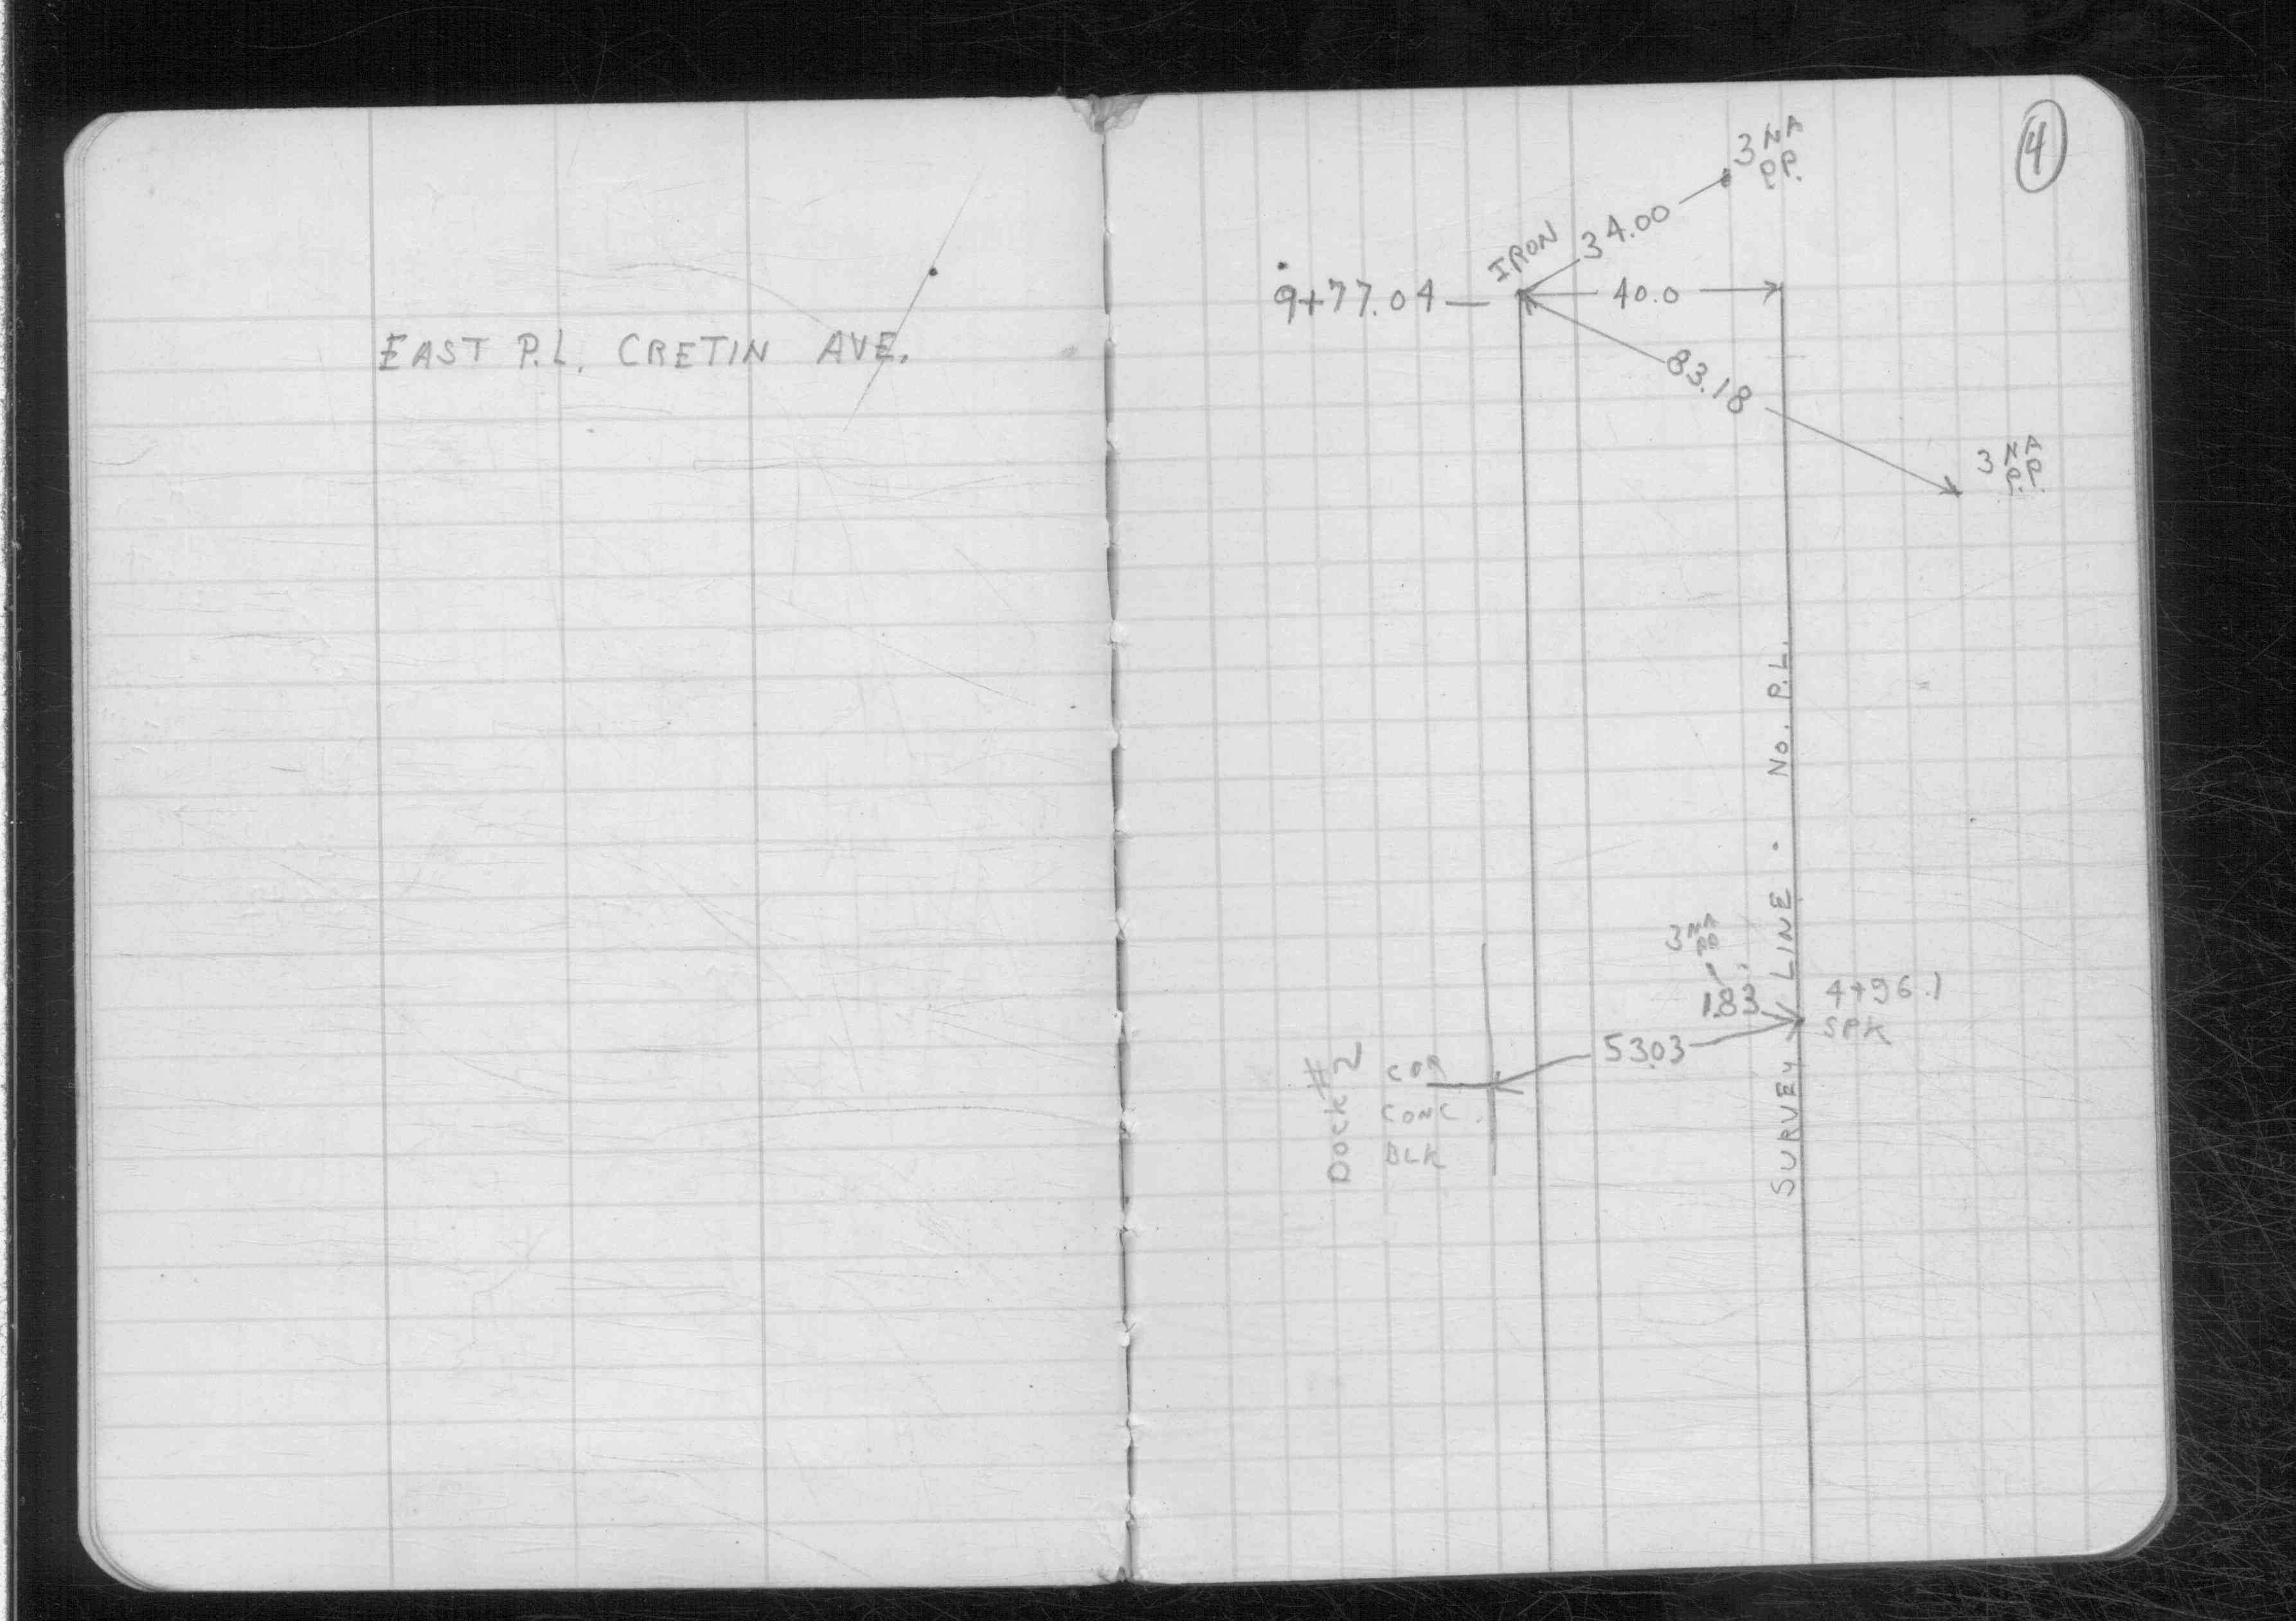 EAST P.L. CRETIN AVE.
4
3 NA
P.P.
IRON
34.00
9+77.04
40.0
83.18
3 NA
P.P.
SURVEY LINE . No. P.L.
3 NA
PP
1.83
4+96.1
SPK
53.03
Dock #2
COR
CONC.
BLK